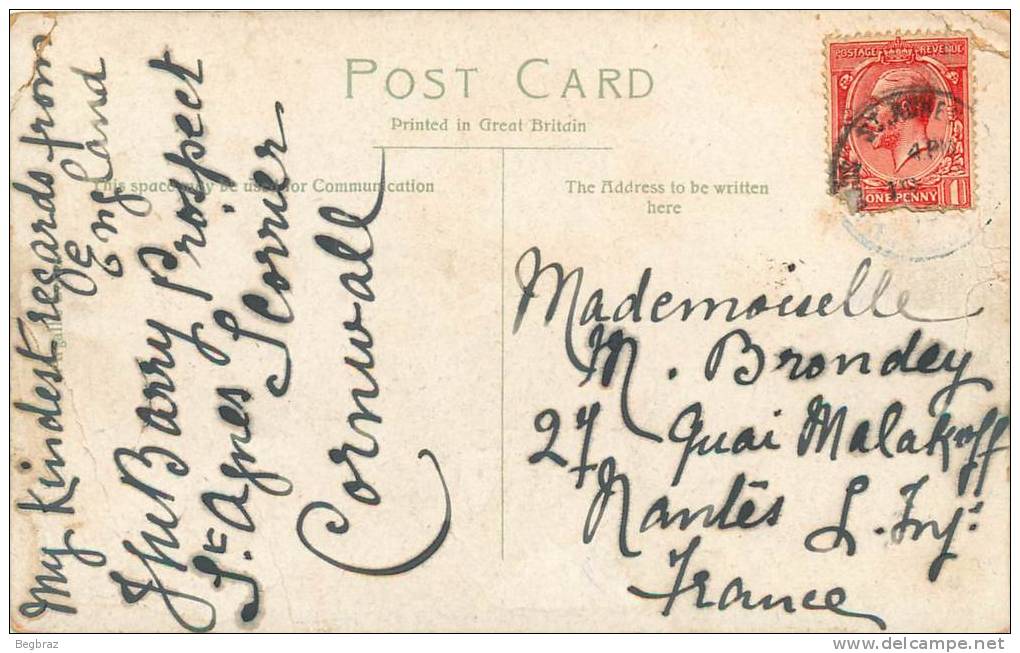 POST CARD
Printed in Great Britain
This space may be used for Communication
The Address to be written
here
POSTAGE REVENUE
ONE PENNY 1
ST. AGNES
4 PM
My Kindest regards from
England
Jhe Barry Prospect
St. Agnes Scorrier
Cornwall
Mademouelle
M. Brondey
27 Quai Malakoff
Nantes L. Inf.
France
Begbraz
delcampe.net